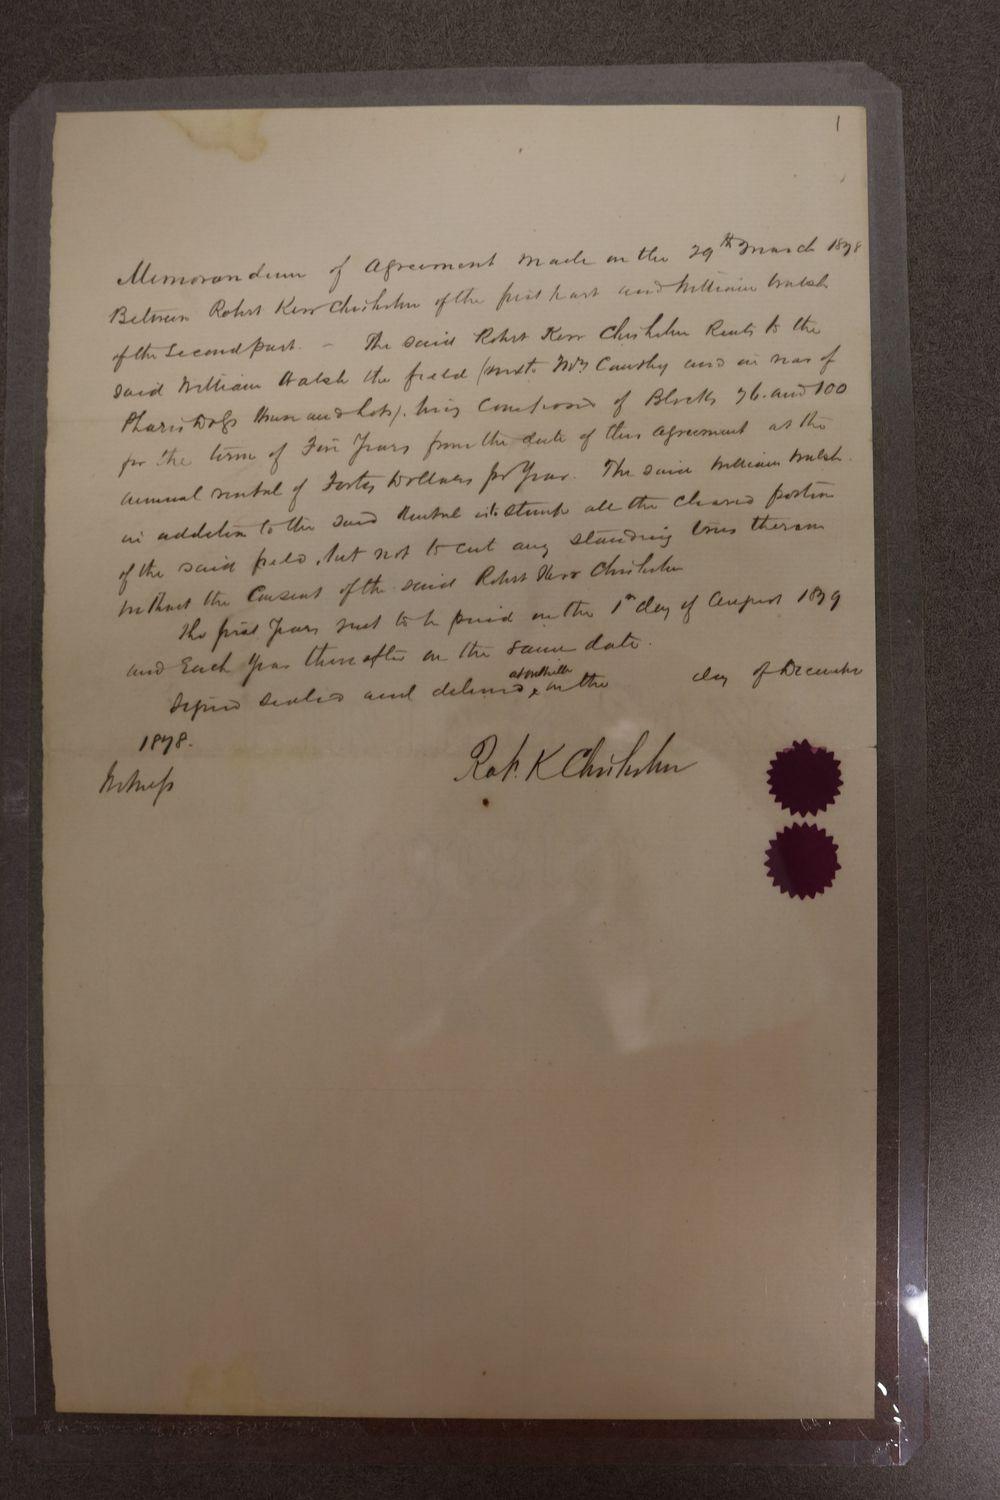 1
Memorandum of Agreement made on the 29th March 1878
Between Robert Kerr Chisholm of the first part and William Walsh
of the Second part. - The said Robert Kerr Chisholm Rents to the
said William Walsh the field (next Wm Cawthy and in rear of
House and Lots), being Composed of Blocks 76. and 100
for the term of Five Years from the date of this Agreement at the
annual rental of Forty Dollars per Year. The said William Walsh
in addition to the said Rental is to stump all the cleared portion
of the said field, but not to cut any standing trees thereon
without the Consent of the said Robert Kerr Chisholm
The first Years rent to be paid on the 1st day of August 1879
and Each Year thereafter on the same date.
Signed sealed and delivered at Oakville on the day of December
1878.
Witness
Robt. K Chisholm